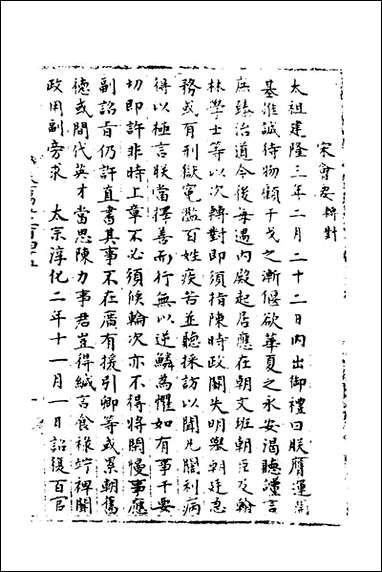 宋會要 轉對
太祖建隆三年二月二十二日内出御禮曰朕膺運開
基推誠待物顧干戈之漸偃欲華夏之永安渴聽讜言
庶臻治道今後每遇内殿起居應在朝文班朝臣及翰
林學士等以次轉對即須指陳時政闕失明舉朝廷急
務或有刑獄冤濫百姓疾苦並聽採訪以聞凡關利病
得以極言朕當擇善而行無以逆鱗為懼如有事干要
切即許非時上章不必須候輪次亦不得將閑慢事應
副詔旨仍許直書其事不在廣有援引卿等或累朝舊
徳或間代英才當思陳力事君豈得緘言食祿竚裨闕
政用副旁求 太宗淳化二年十一月一日詔復百官